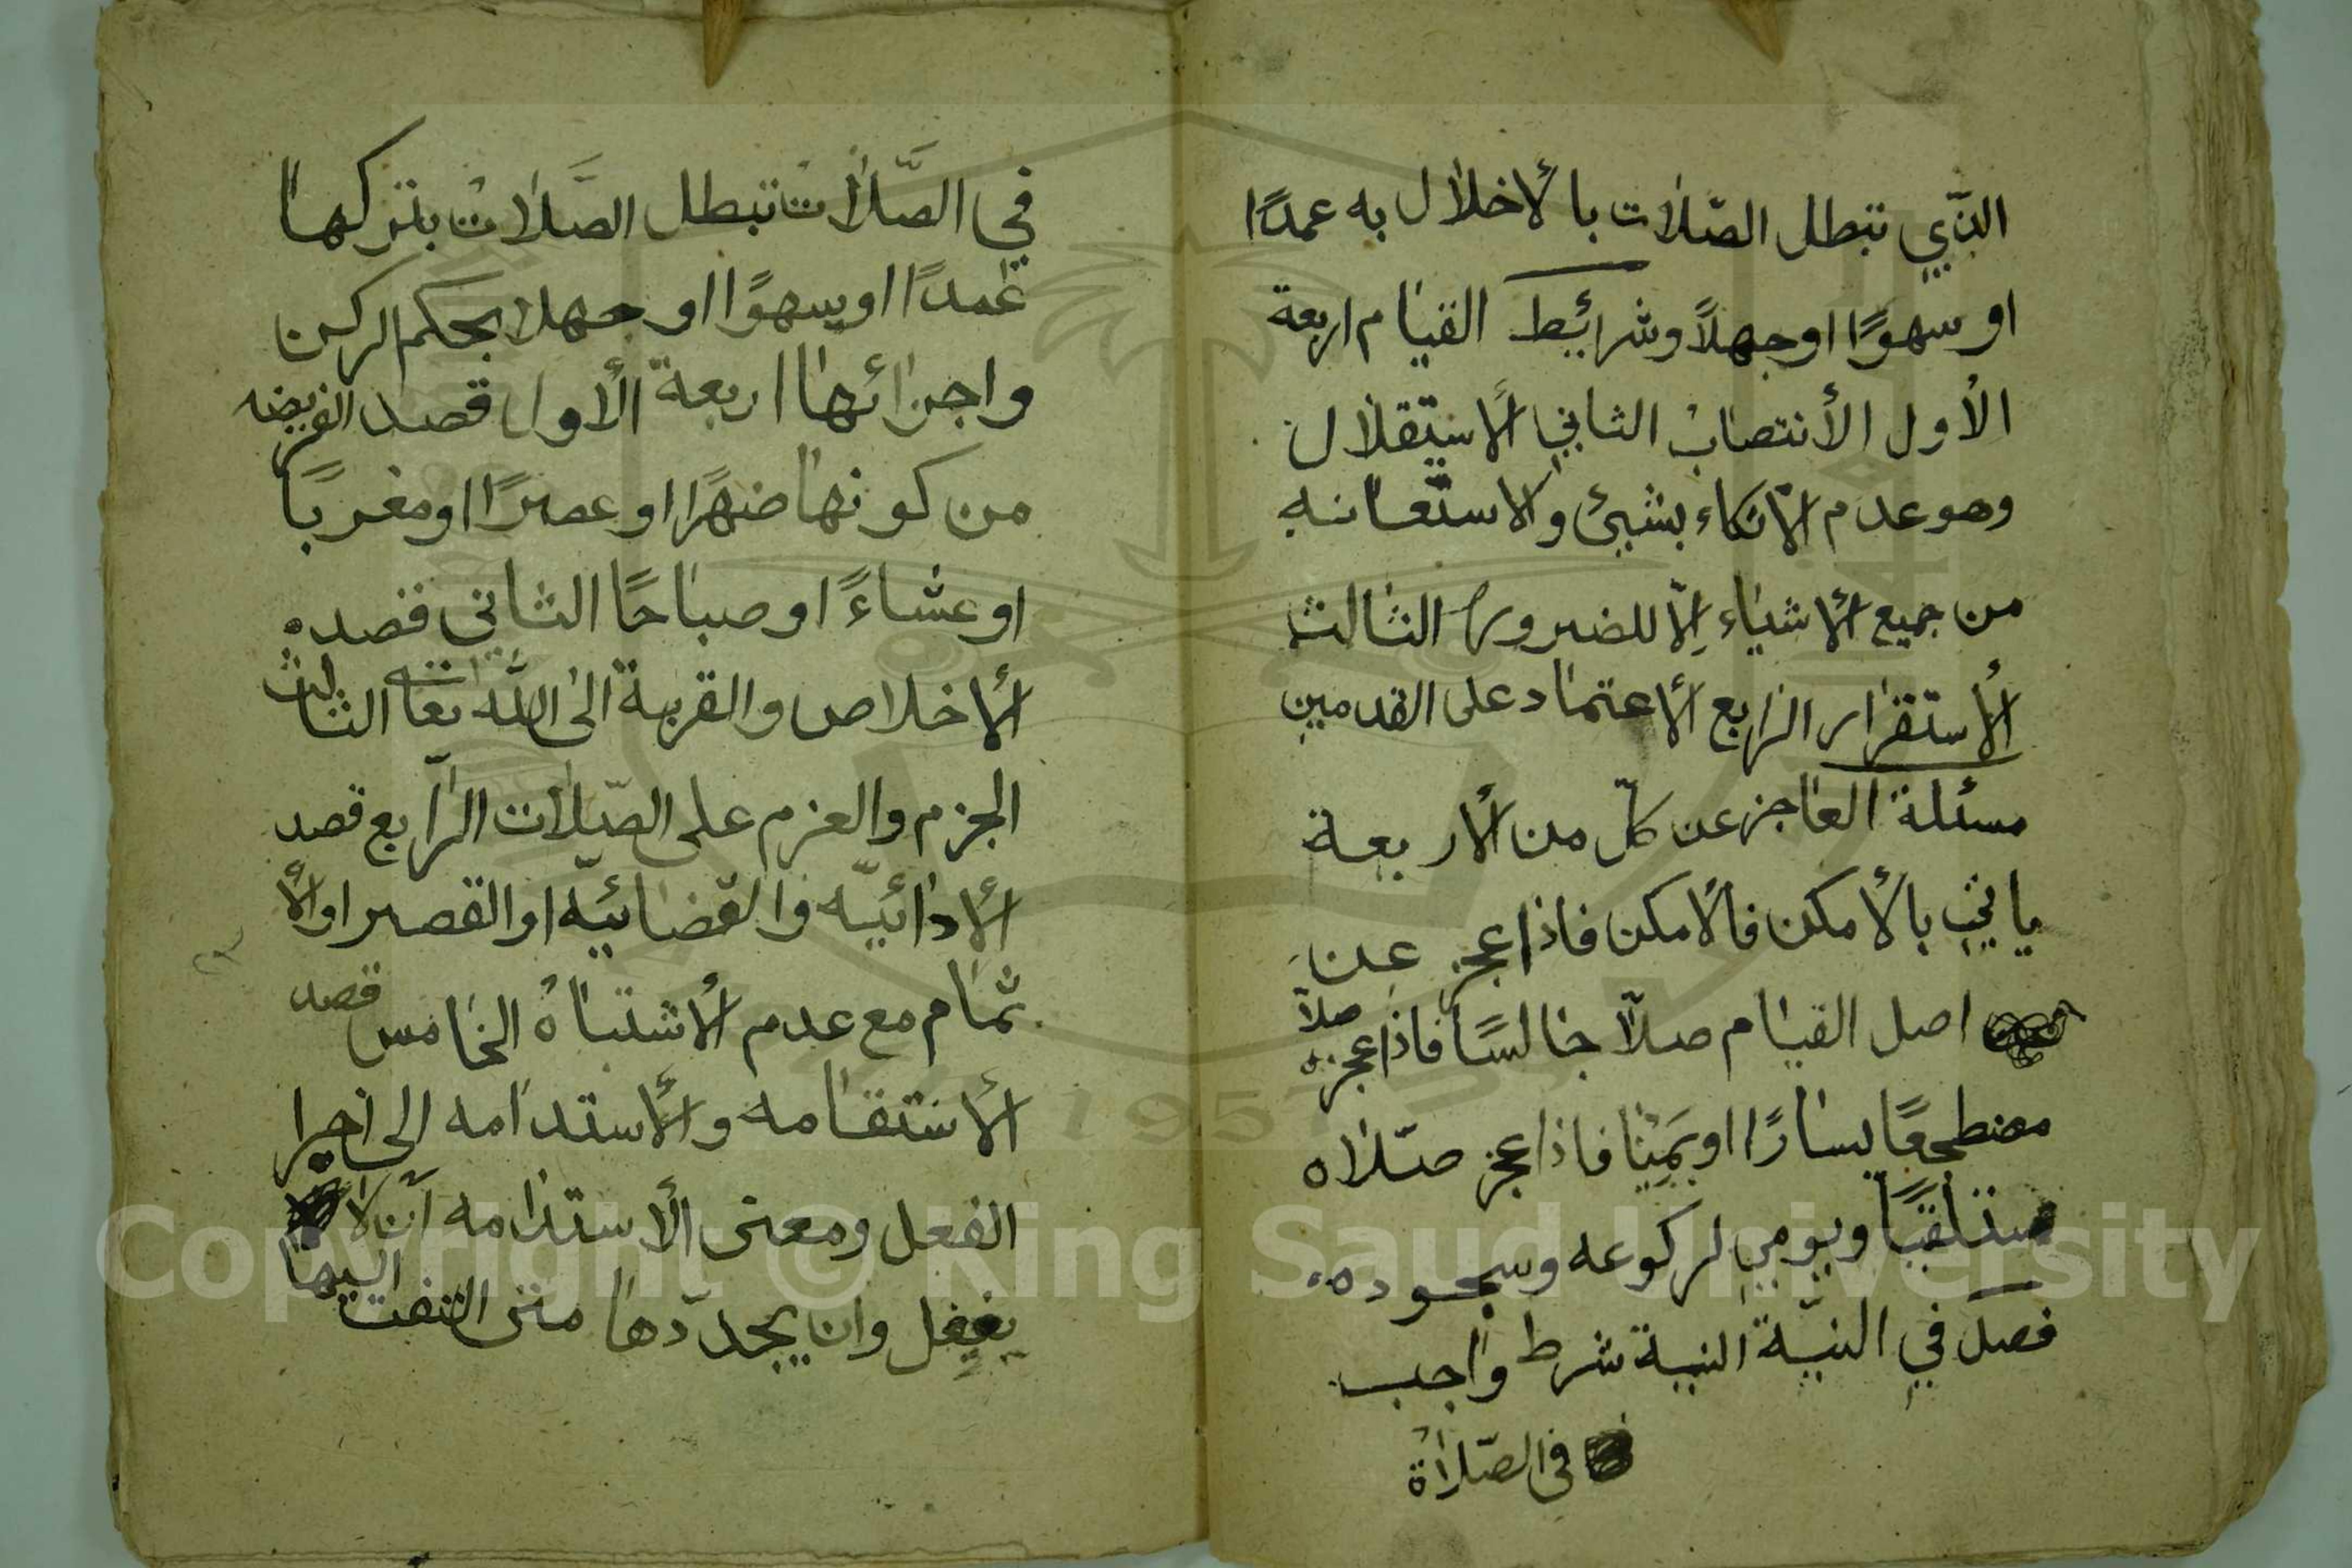 الذّي تبطل الصّلات بالأخلال به عمدًا
او سهوًا اوجهلاً وشرائيط القيام اربعة
الأول الأنتصاب الثاني الأستقلال
وهو عدم الاتكاء بشيئ والاستعانه
من جميع الأشياء إلّا للضرورة الثالث
الأستقرار الرابع الأعتماد على القدمين
مسئلة العاجز عن كلّ من الأربعة
ياتي بالأمكن فالأمكن فاذا عجز عن
اصل القيام صلّا جالسًا فاذا عجز صلاّ
مضطجعًا يسارًا او يمينًا فاذا عجز صلّاه
مستلقيًا ويومي لركوعه وسجوده
فصل في النيّة النية شرط واجب
في الصّلاة
في الصَّلات تبطل الصَّلات بتركها
عمدًا او سهوًا او جهلا بحكم الركن
واجزائها اربعة الأول قصد الفريضه
من كونها ضهرًا او عصرًا او مغربًا
او عشاءً او صباحًا الثاني قصده
الأخلاص والقربة الى الله تعا الثالث
الجزم والعزم على الصّلات الرّابع قصد
الأدائيّه والقضائيّه او القصر او الأ
تمام مع عدم الأشتباه الخامس قصد
الأستقامه والأستدامه الى اخر
الفعل ومعنى الأستدامه أن لا
يغفل وان يجدّدها متى التفت اليها
Copyright © King Saud University
1957